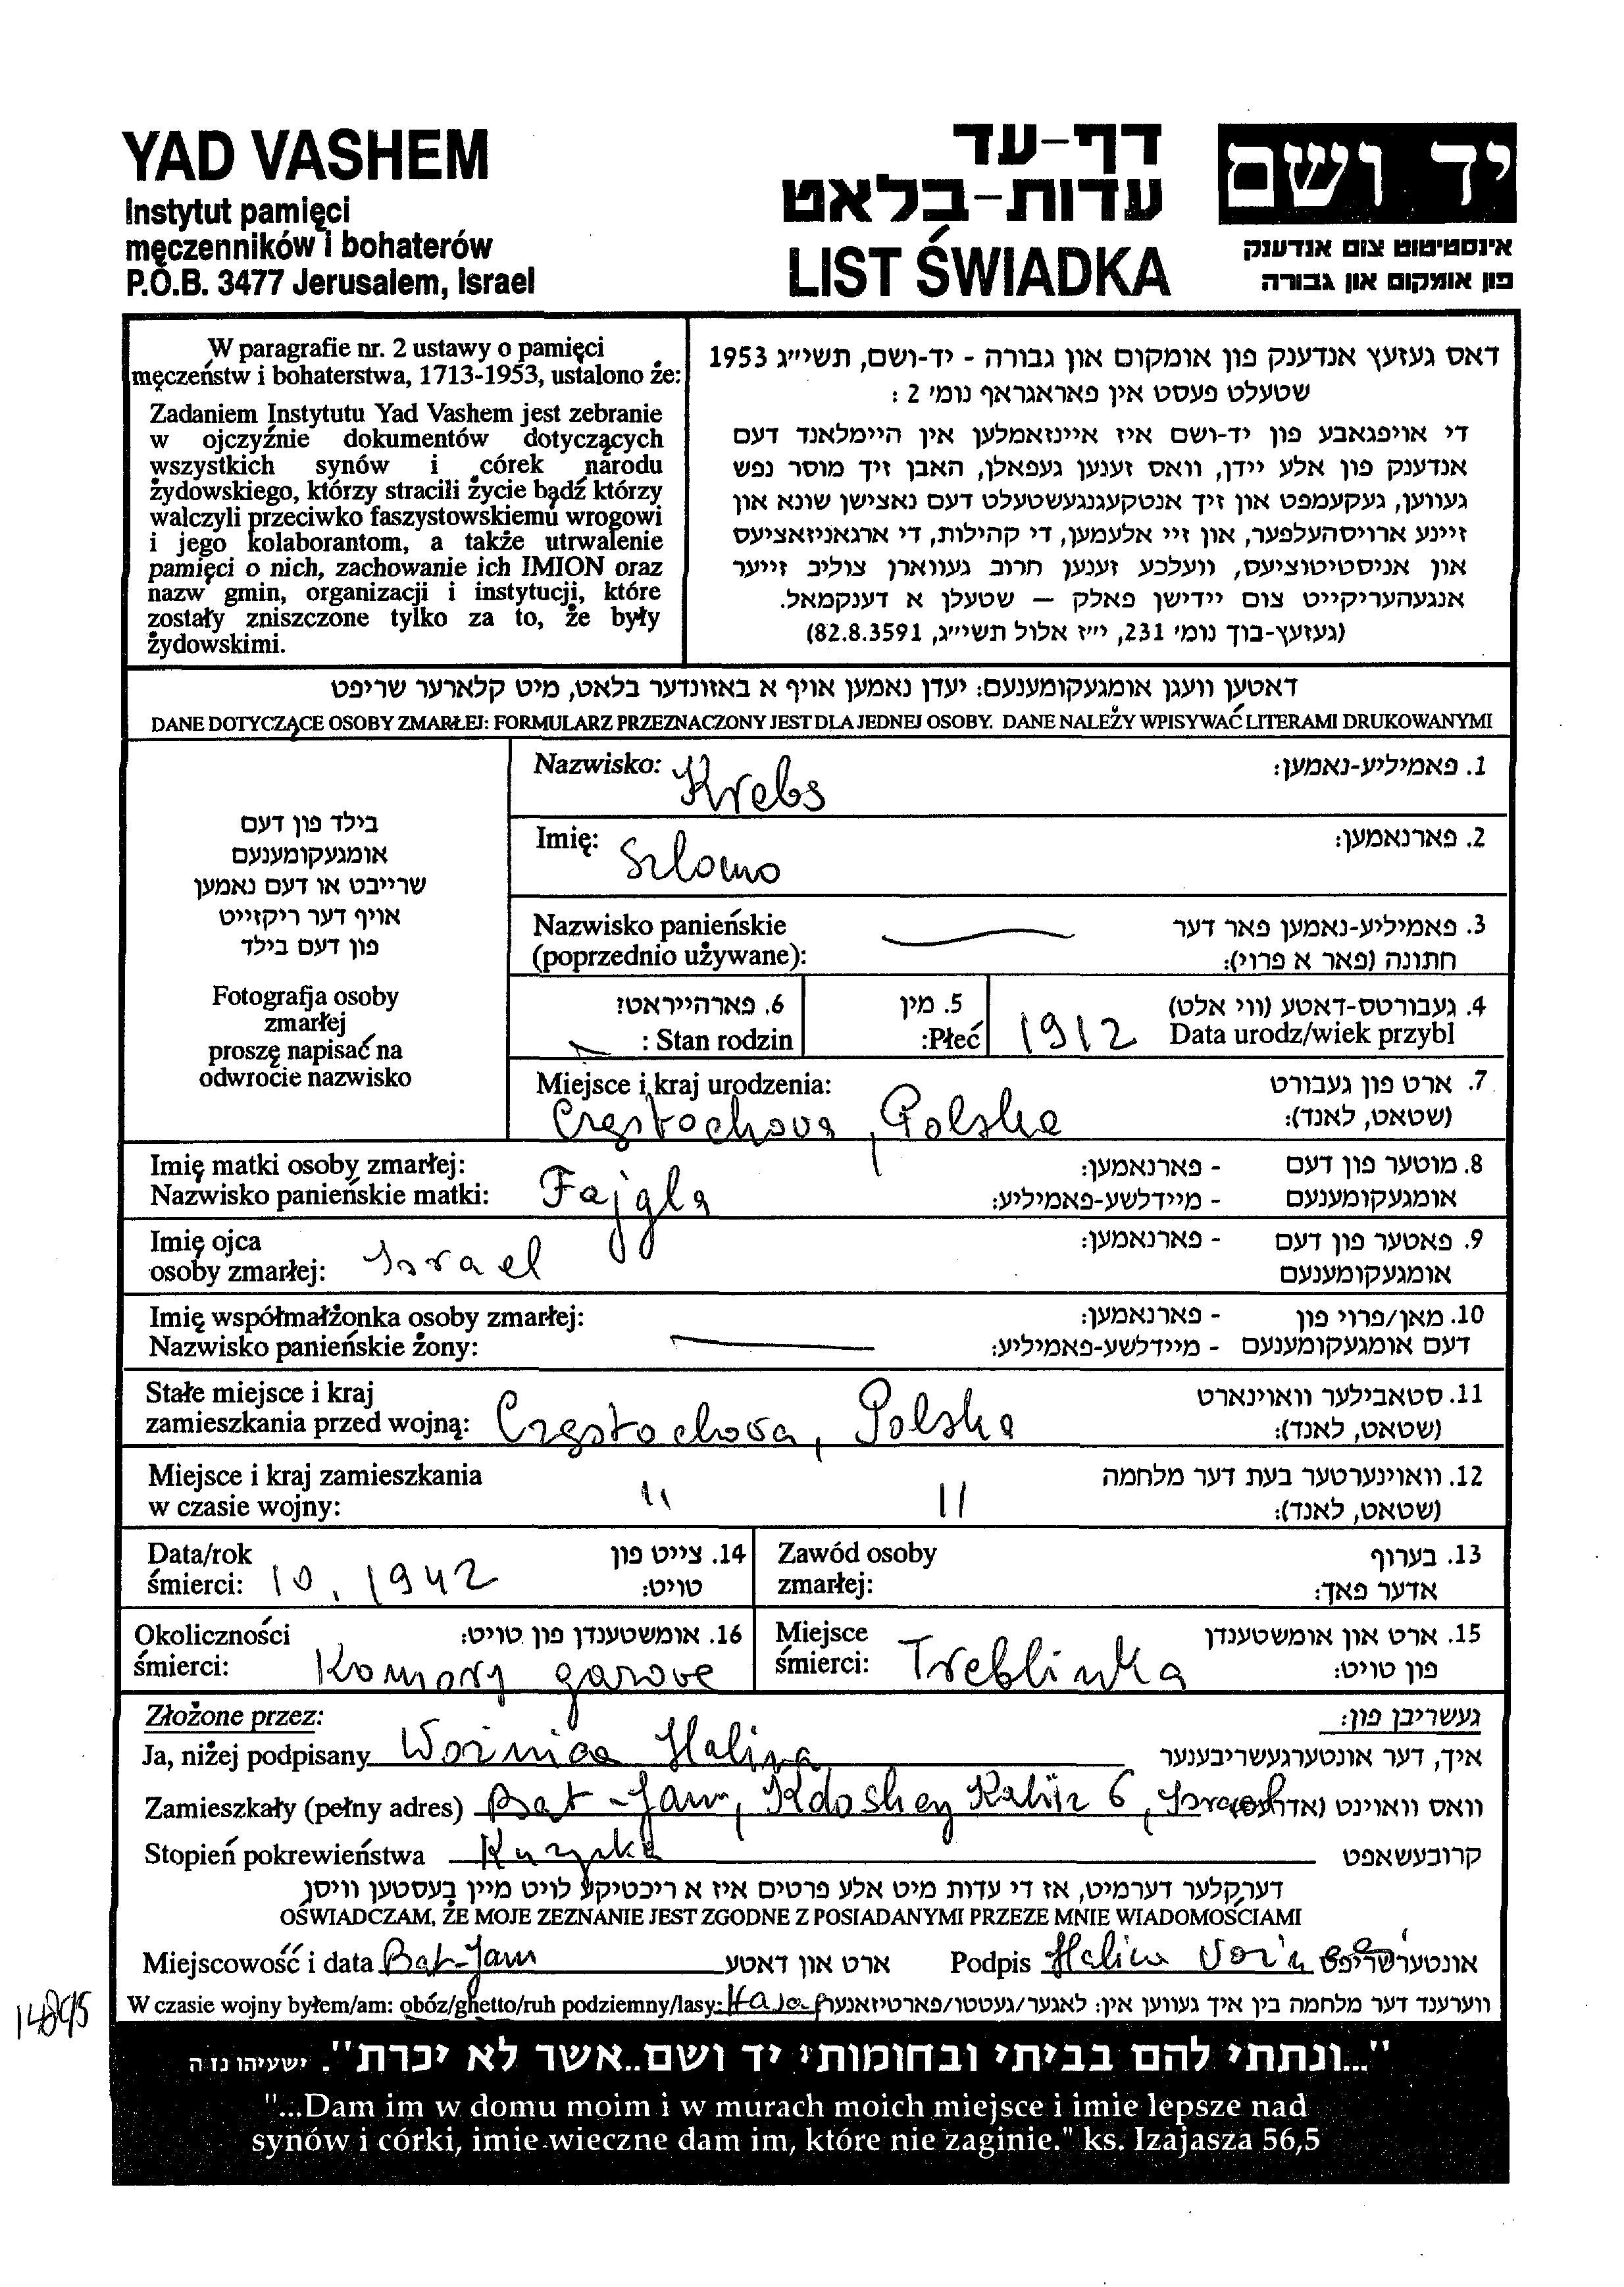 YAD VASHEM
Instytut pamięci
męczenników i bohaterów
P.O.B. 3477 Jerusalem, Israel
דף-עד
עדות-בלאט
LIST ŚWIADKA
יד ושם
אינסטיטוט צום אנדענק
פון אומקום און גבורה
W paragrafie nr. 2 ustawy o pamięci
męczeństw i bohaterstwa, 1713-1953, ustalono że:
Zadaniem Instytutu Yad Vashem jest zebranie
w ojczyźnie dokumentów dotyczących
wszystkich synów i córek narodu
żydowskiego, którzy stracili życie bądź którzy
walczyli przeciwko faszystowskiemu wrogowi
i jego kolaborantom, a także utrwalenie
pamięci o nich, zachowanie ich IMION oraz
nazw gmin, organizacji i instytucji, które
zostały zniszczone tylko za to, że były
żydowskimi.
דאס געזעץ אנדענק פון אומקום און גבורה - יד-ושם, תשי״ג 1953
שטעלט פעסט אין פאראגראף נומ׳ 2 :
די אויפגאבע פון יד-ושם איז איינזאמלען אין היימלאנד דעם
אנדענק פון אלע יידן, וואס זענען געפאלן, האבן זיך מוסר נפש
געווען, געקעמפט און זיך אנטקעגנגעשטעלט דעם נאצישן שונא און
זיינע ארויסהעלפער, און זיי אלעמען, די קהילות, די ארגאניזאציעס
און אניסטיטוציעס, וועלכע זענען חרוב געווארן צוליב זייער
אנגעהעריקייט צום יידישן פאלק — שטעלן א דענקמאל.
(געזעץ-בוך נומ׳ 231, י״ז אלול תשי״ג, 82.8.3591)
דאטען וועגן אומגעקומענעם: יעדן נאמען אויף א באזונדער בלאט, מיט קלארער שריפט
DANE DOTYCZĄCE OSOBY ZMARŁEJ: FORMULARZ PRZEZNACZONY JEST DLA JEDNEJ OSOBY. DANE NALEŻY WPISYWAĆ LITERAMI DRUKOWANYMI
בילד פון דעם
אומגעקומענעם
שרייבט או דעם נאמען
אויף דער ריקזייט
פון דעם בילד
Fotografja osoby
zmarłej
proszę napisać na
odwrocie nazwisko
Nazwisko: Krebs 1. פאמיליע-נאמען:
Imię: Szlomo 2. פארנאמען:
Nazwisko panieńskie 3. פאמיליע-נאמען פאר דער
(poprzednio używane): חתונה (פאר א פרוי):
6. פארהייראט? 5. מין 4. געבורטס-דאטע (ווי אלט)
: Stan rodzin :Płeć 1912 Data urodz/wiek przybl
Miejsce i kraj urodzenia: 7. ארט פון געבורט
Częstochova, Polska (שטאט, לאנד):
Imię matki osoby zmarłej: - פארנאמען: 8. מוטער פון דעם
Nazwisko panieńskie matki: Fajgla - מיידלשע-פאמיליע: אומגעקומענעם
Imię ojca - פארנאמען: 9. פאטער פון דעם
osoby zmarłej: Israel אומגעקומענעם
Imię współmałżonka osoby zmarłej: - פארנאמען: 10. מאן/פרוי פון
Nazwisko panieńskie żony: - מיידלשע-פאמיליע: דעם אומגעקומענעם
Stałe miejsce i kraj 11. סטאבילער וואוינארט
zamieszkania przed wojną: Częstochova, Polska (שטאט, לאנד):
Miejsce i kraj zamieszkania 12. וואוינערטער בעת דער מלחמה
w czasie wojny: " " (שטאט, לאנד):
Data/rok 14. צייט פון Zawód osoby 13. בערוף
śmierci: 10. 1942 טויט: zmarłej: אדער פאך:
Okoliczności 16. אומשטענדן פון טויט: Miejsce 15. ארט און אומשטענדן
śmierci: Komory gazove śmierci: Treblinka פון טויט:
Złożone przez: געשריבן פון:
Ja, niżej podpisany Woźnica Halina איך, דער אונטערגעשריבענער
Zamieszkały (pełny adres) Bat-Jam, Kdoshey Kahir 6, Israel וואס וואוינט (אדרעס)
Stopień pokrewieństwa Kuzynka קרובעשאפט
דערקלער דערמיט, אז די עדות מיט אלע פרטים איז א ריכטיקע לויט מיין בעסטען וויסן
OŚWIADCZAM, ŻE MOJE ZEZNANIE JEST ZGODNE Z POSIADANYMI PRZEZE MNIE WIADOMOŚCIAMI
Miejscowość i data Bat-Jam ארט און דאטע Podpis Halina אונטערשריפט
W czasie wojny byłem/am: obóz/ghetto/ruh podziemny/lasy: ווערענד דער מלחמה בין איך געווען אין: לאגער/געטטו/פארטיזאנער
14895
"...ונתתי להם בביתי ובחומותי יד ושם..אשר לא יכרת". ישעיהו נו ה
"...Dam im w domu moim i w murach moich miejsce i imie lepsze nad
synów i córki, imie wieczne dam im, które nie zaginie." ks. Izajasza 56,5